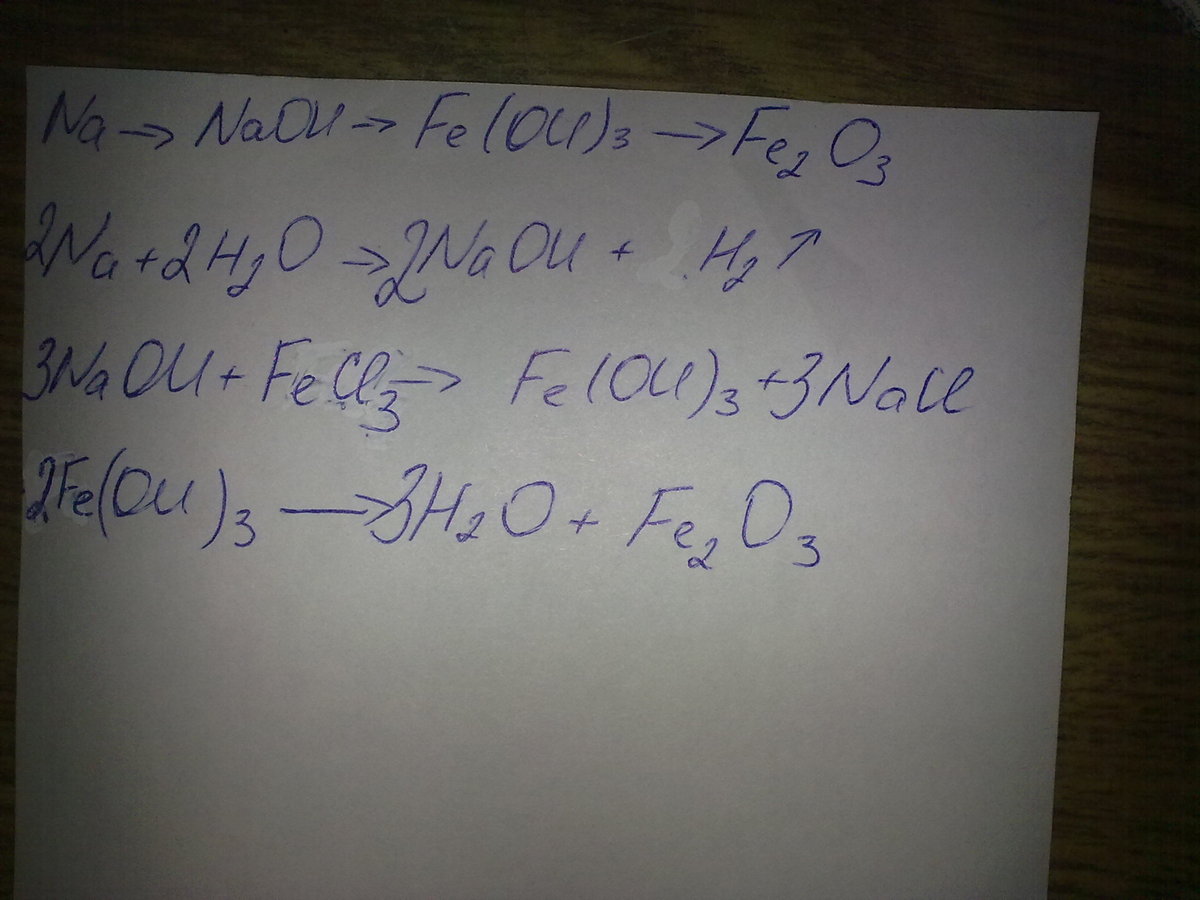 Na → NaOH → Fe(OH)₃ → Fe₂O₃
2Na + 2H₂O → 2NaOH + H₂↑
3NaOH + FeCl₃ → Fe(OH)₃ + 3NaCl
2Fe(OH)₃ → 3H₂O + Fe₂O₃